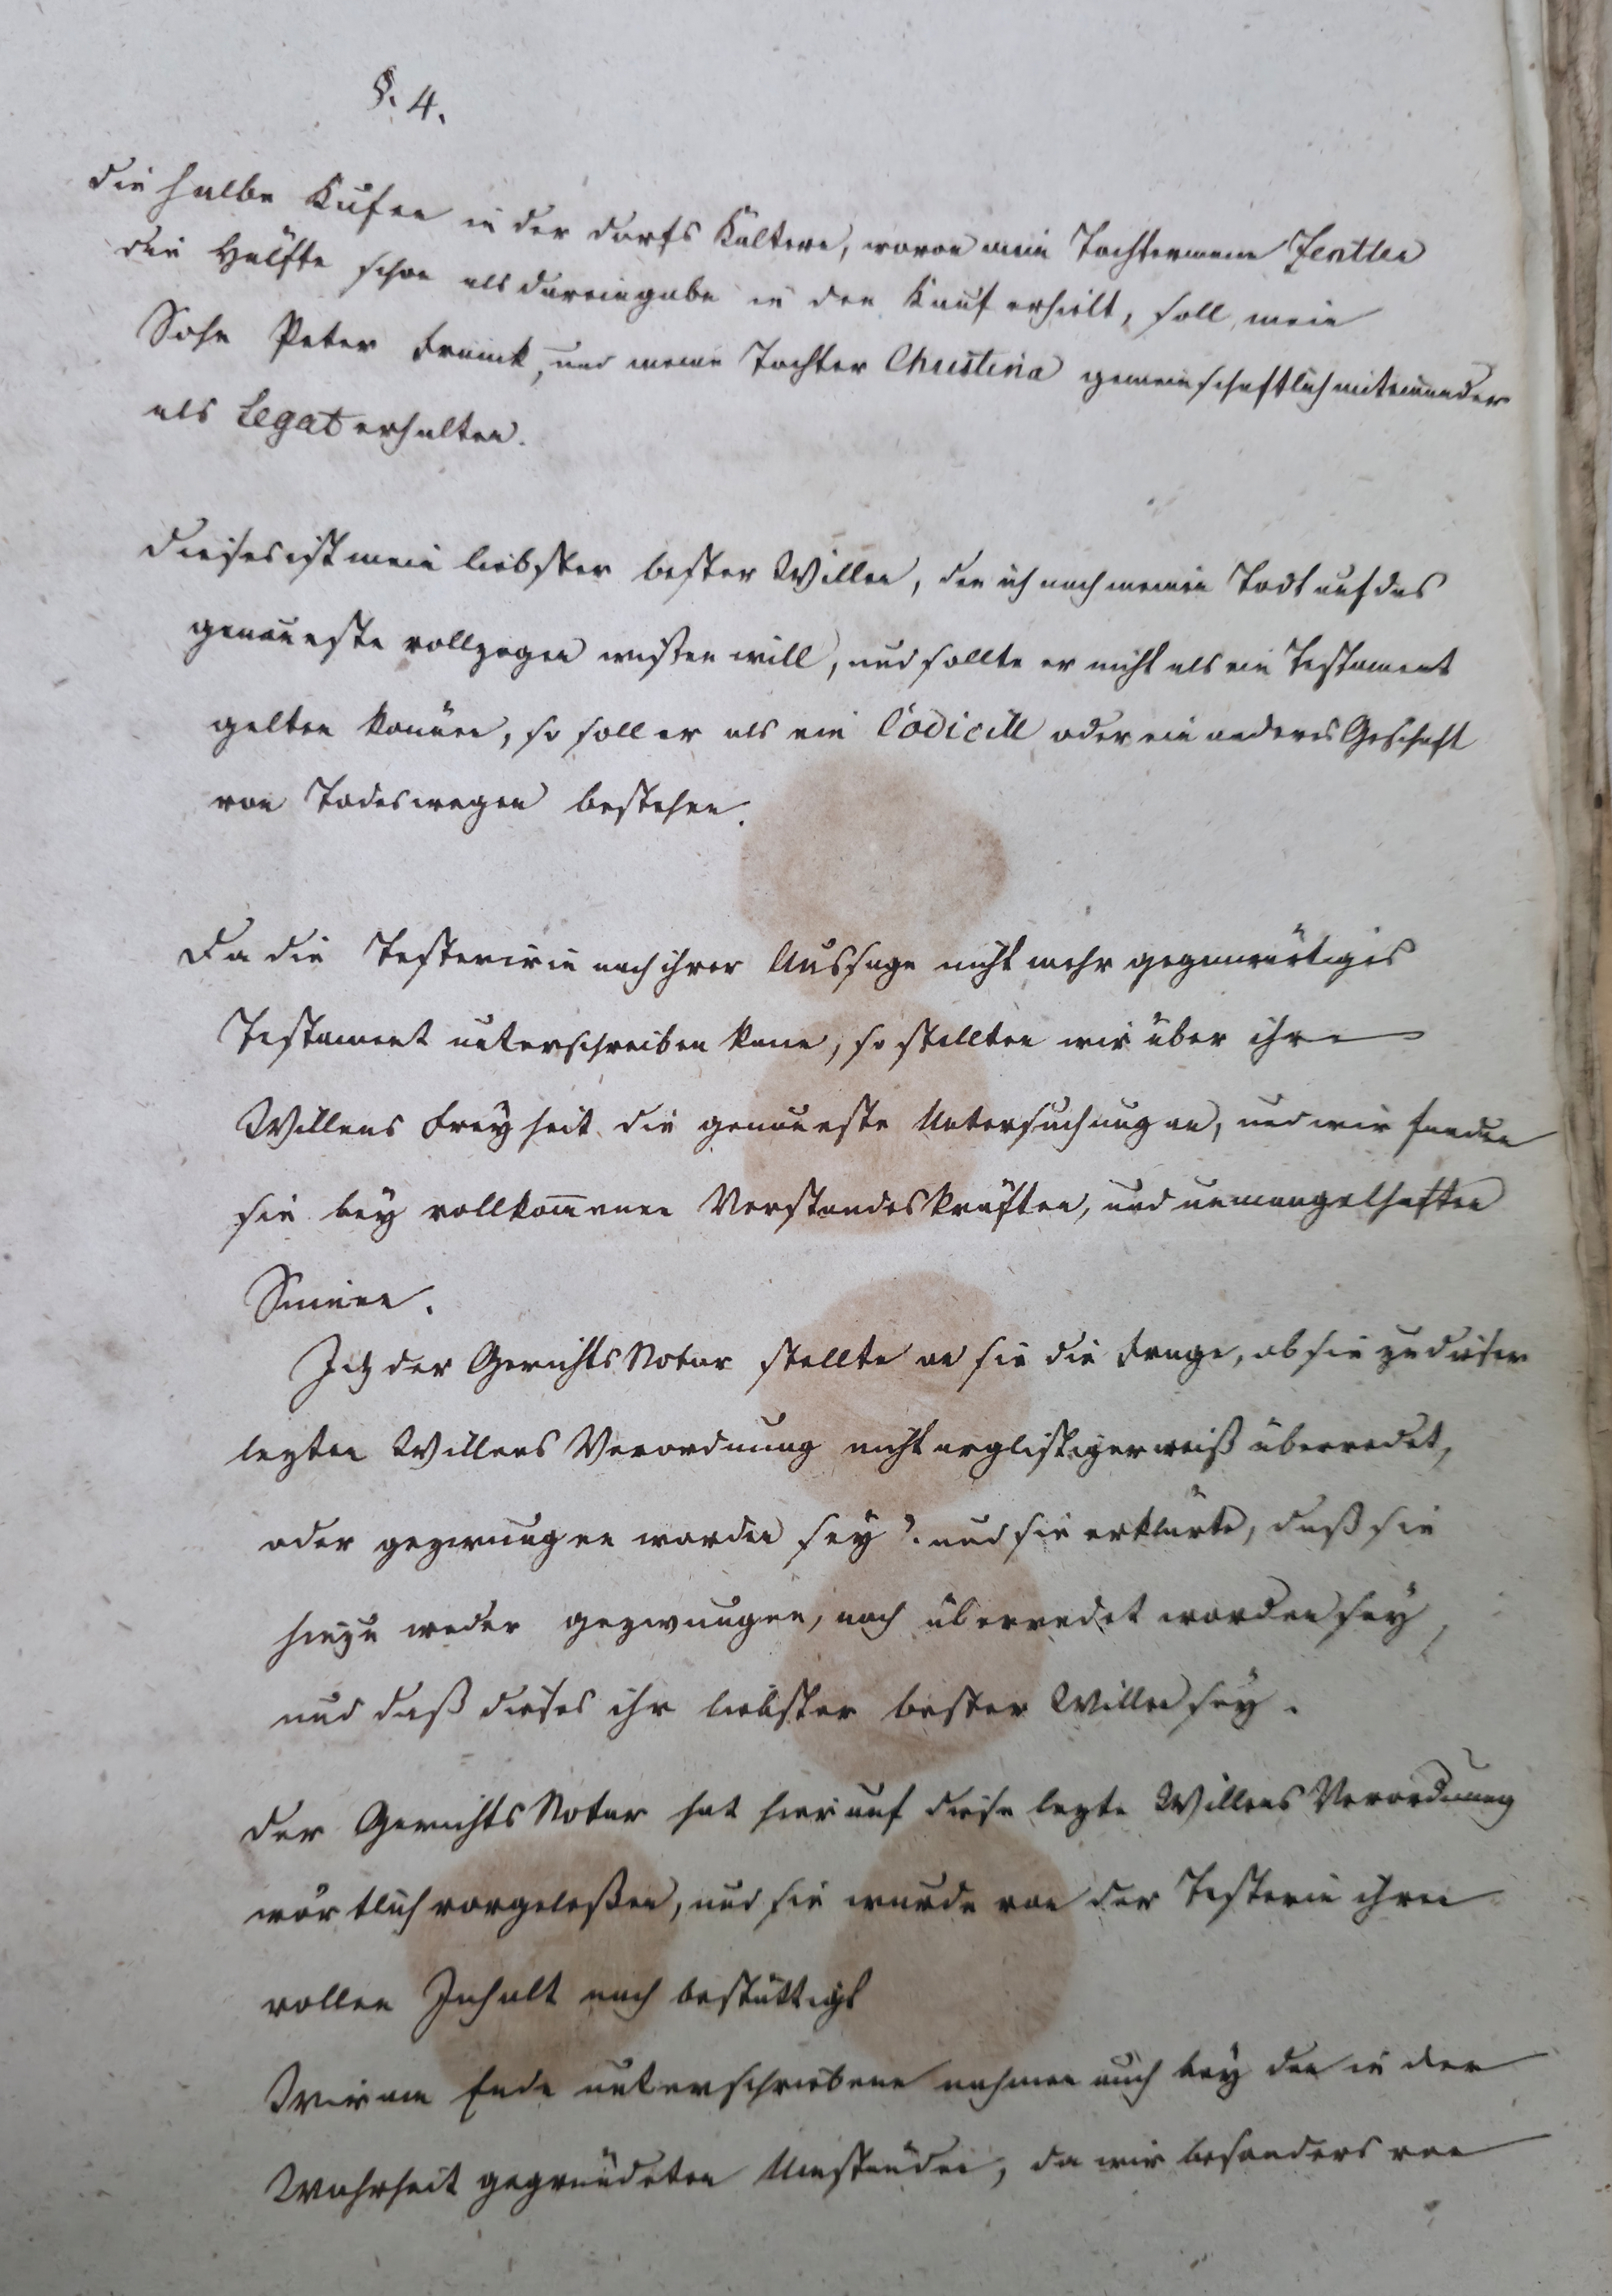 §. 4.
die halbe Kufen in der dorfs Kältere, wovon mein Tochtermann Zentlen
die Hälfte schon als dareingabe in den Kauf erhielt, soll mein
Sohn Peter Franck, und meine Tochter Christina gemeinschaftlich miteinander
als Legat erhalten.
dieses ist mein liebster bester Willen, den ich nach meinem Todt auf das
genaueste vollzogen wißen will, und sollte er nicht als ein Testament
gelten können, so soll er als ein Codicill oder ein anderes Geschäft
von Todeswegen bestehen.
Da die Testiererin nach ihrer Aussage nicht mehr gegenwärtiges
Testament unterschreiben kann, so stellten wir über ihre
Willens Freyheit die genaueste Untersuchung an, und wir fanden
sie bey vollkom̅enen Verstandeskräften, und unmangelhaften
Sinnen.
Ich der Gerichts Notar stellte an sie die Frage, ob sie zu dieser
lezten Willens Verordnung nicht arglistigerweiß überredet,
oder gezwungen worden sey? und sie erklärte, daß sie
hiezu weder gezwungen, noch überredet worden sey,
und daß dieses ihr liebster bester Willen sey.
der Gerichts Notar hat hierauf diese lezte Willens Verordnung
wörtlich vorgeleßen, und sie wurde von der Testerin ihren
vollen Inhalt nach bestättigt
Wir am Ende unterschriebene nahmen auch bey den in der
Wahrheit gegründeten Umständen, da wir besonders von